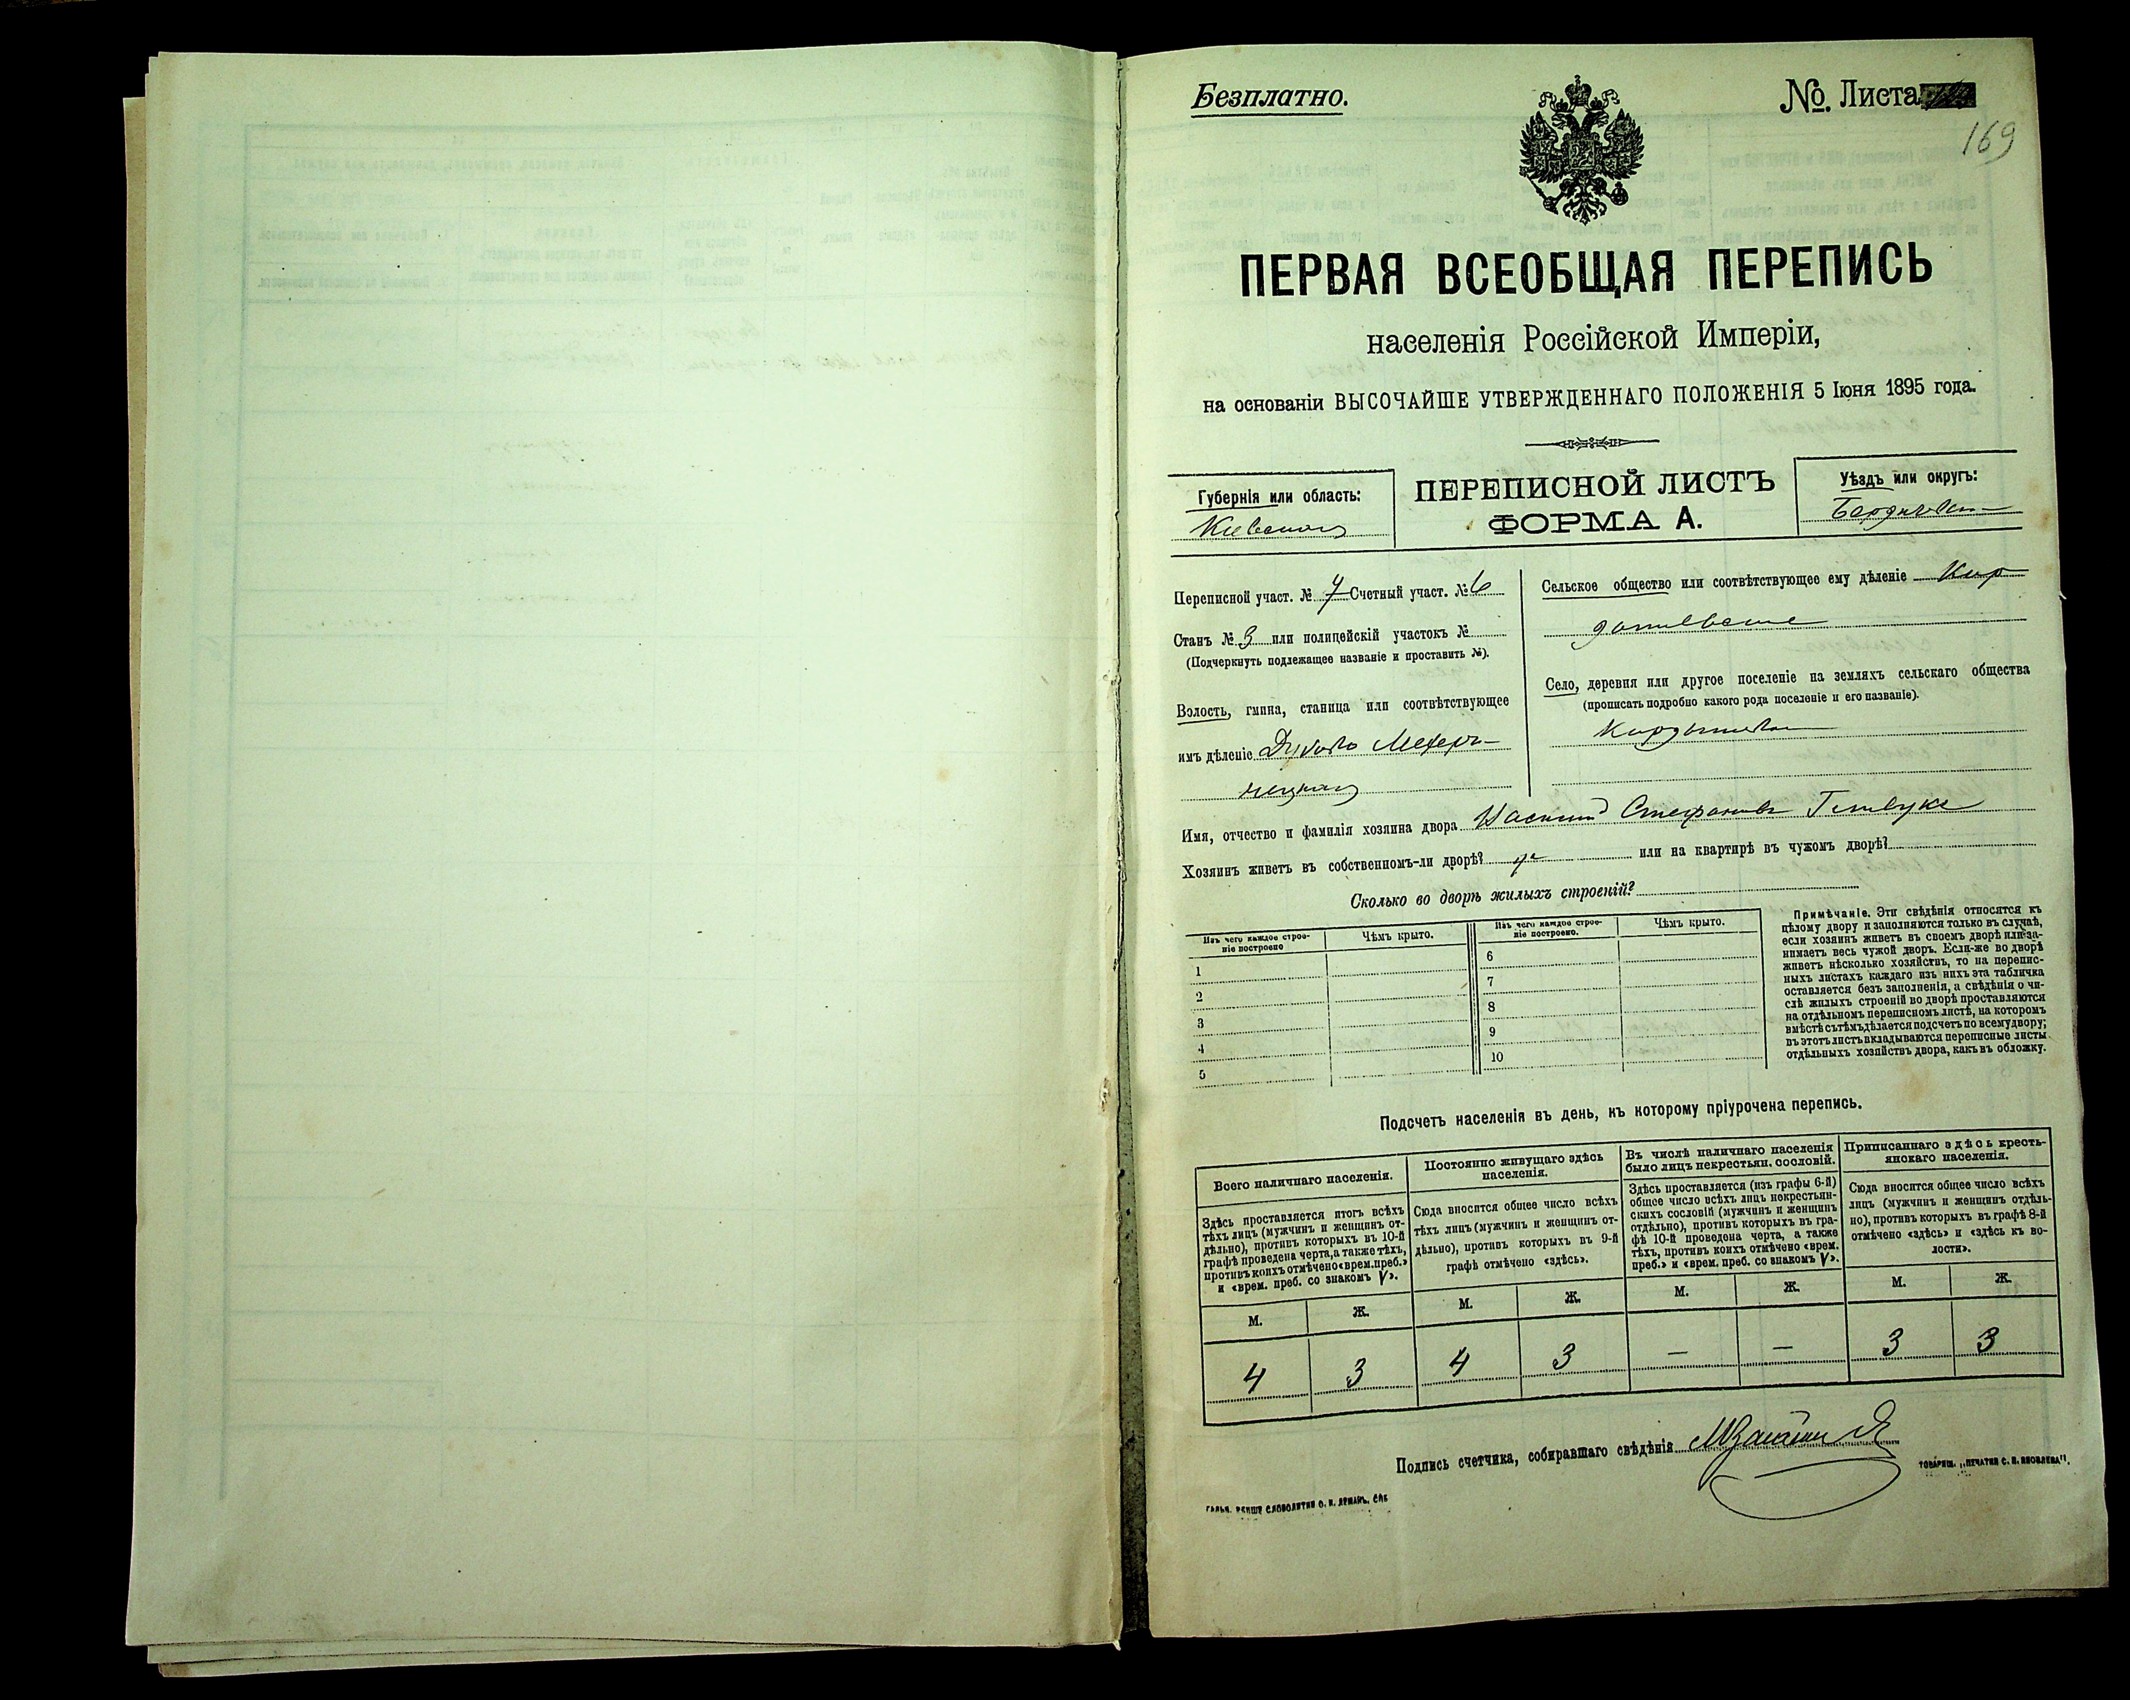 Безплатно.
№. Листа
169
ПЕРВАЯ ВСЕОБЩАЯ ПЕРЕПИСЬ
населенія Россійской Имперіи,
на основаніи ВЫСОЧАЙШЕ УТВЕРЖДЕННАГО ПОЛОЖЕНІЯ 5 Іюня 1895 года.
Губернія или область:
Киевская
ПЕРЕПИСНОЙ ЛИСТЪ
ФОРМА А.
Уѣздъ или округъ:
Переписной участ. № 7 Счетный участ. № 6
Станъ № 3 или полицейскій участокъ №
(Подчеркнуть подлежащее названіе и проставить №).
Волость, гмина, станица или соотвѣтствующее
имъ дѣленіе
Сельское общество или соотвѣтствующее ему дѣленіе
Село, деревня или другое поселеніе на земляхъ сельскаго общества
(прописать подробно какого рода поселеніе и его названіе).
Имя, отчество и фамилія хозяина двора
Хозяинъ живетъ въ собственномъ-ли дворѣ? да или на квартирѣ въ чужомъ дворѣ?
Сколько во дворѣ жилыхъ строеній?
Изъ чего каждое строе-
ніе построено
Чѣмъ крыто.
Изъ чего каждое строе-
ніе построено.
Чѣмъ крыто.
1
2
3
4
5
6
7
8
9
10
Примѣчаніе. Эти свѣдѣнія относятся къ
цѣлому двору и заполняются только въ случаѣ,
если хозяинъ живетъ въ своемъ дворѣ или за-
нимаетъ весь чужой дворъ. Если-же во дворѣ
живетъ нѣсколько хозяйствъ, то на перепис-
ныхъ листахъ каждаго изъ нихъ эта табличка
оставляется безъ заполненія, а свѣдѣнія о чи-
слѣ жилыхъ строеній во дворѣ проставляются
на отдѣльномъ переписномъ листѣ, на которомъ
вмѣстѣ съ тѣмъ дѣлается подсчетъ по всему двору;
въ этотъ листъ вкладываются переписные листы
отдѣльныхъ хозяйствъ двора, какъ въ обложку.
Подсчетъ населенія въ день, къ которому пріурочена перепись.
Всего наличнаго населенія.
Здѣсь проставляется итогъ всѣхъ
тѣхъ лицъ (мужчинъ и женщинъ от-
дѣльно), противъ которыхъ въ 10-й
графѣ проведена черта, а также тѣхъ,
противъ коихъ отмѣчено «врем. преб.»
и «врем. преб. со знакомъ V».
Постоянно живущаго здѣсь
населенія.
Сюда вносится общее число всѣхъ
тѣхъ лицъ (мужчинъ и женщинъ от-
дѣльно), противъ которыхъ въ 9-й
графѣ отмѣчено «здѣсь».
Въ числѣ наличнаго населенія
было лицъ некрестьян. сословій.
Здѣсь проставляется (изъ графы 6-й)
общее число всѣхъ лицъ некрестьян-
скихъ сословій (мужчинъ и женщинъ
отдѣльно), противъ которыхъ въ гра-
фѣ 10-й проведена черта, а также
тѣхъ, противъ коихъ отмѣчено «врем.
преб.» и «врем. преб. со знакомъ V».
Приписаннаго здѣсь кресть-
янскаго населенія.
Сюда вносится общее число всѣхъ
лицъ (мужчинъ и женщинъ отдѣль-
но), противъ которыхъ въ графѣ 8-й
отмѣчено «здѣсь» и «здѣсь къ во-
лости».
М. Ж. М. Ж. М. Ж. М. Ж.
4 3 4 3 — — 3 3
Подпись счетчика, собиравшаго свѣдѣнія